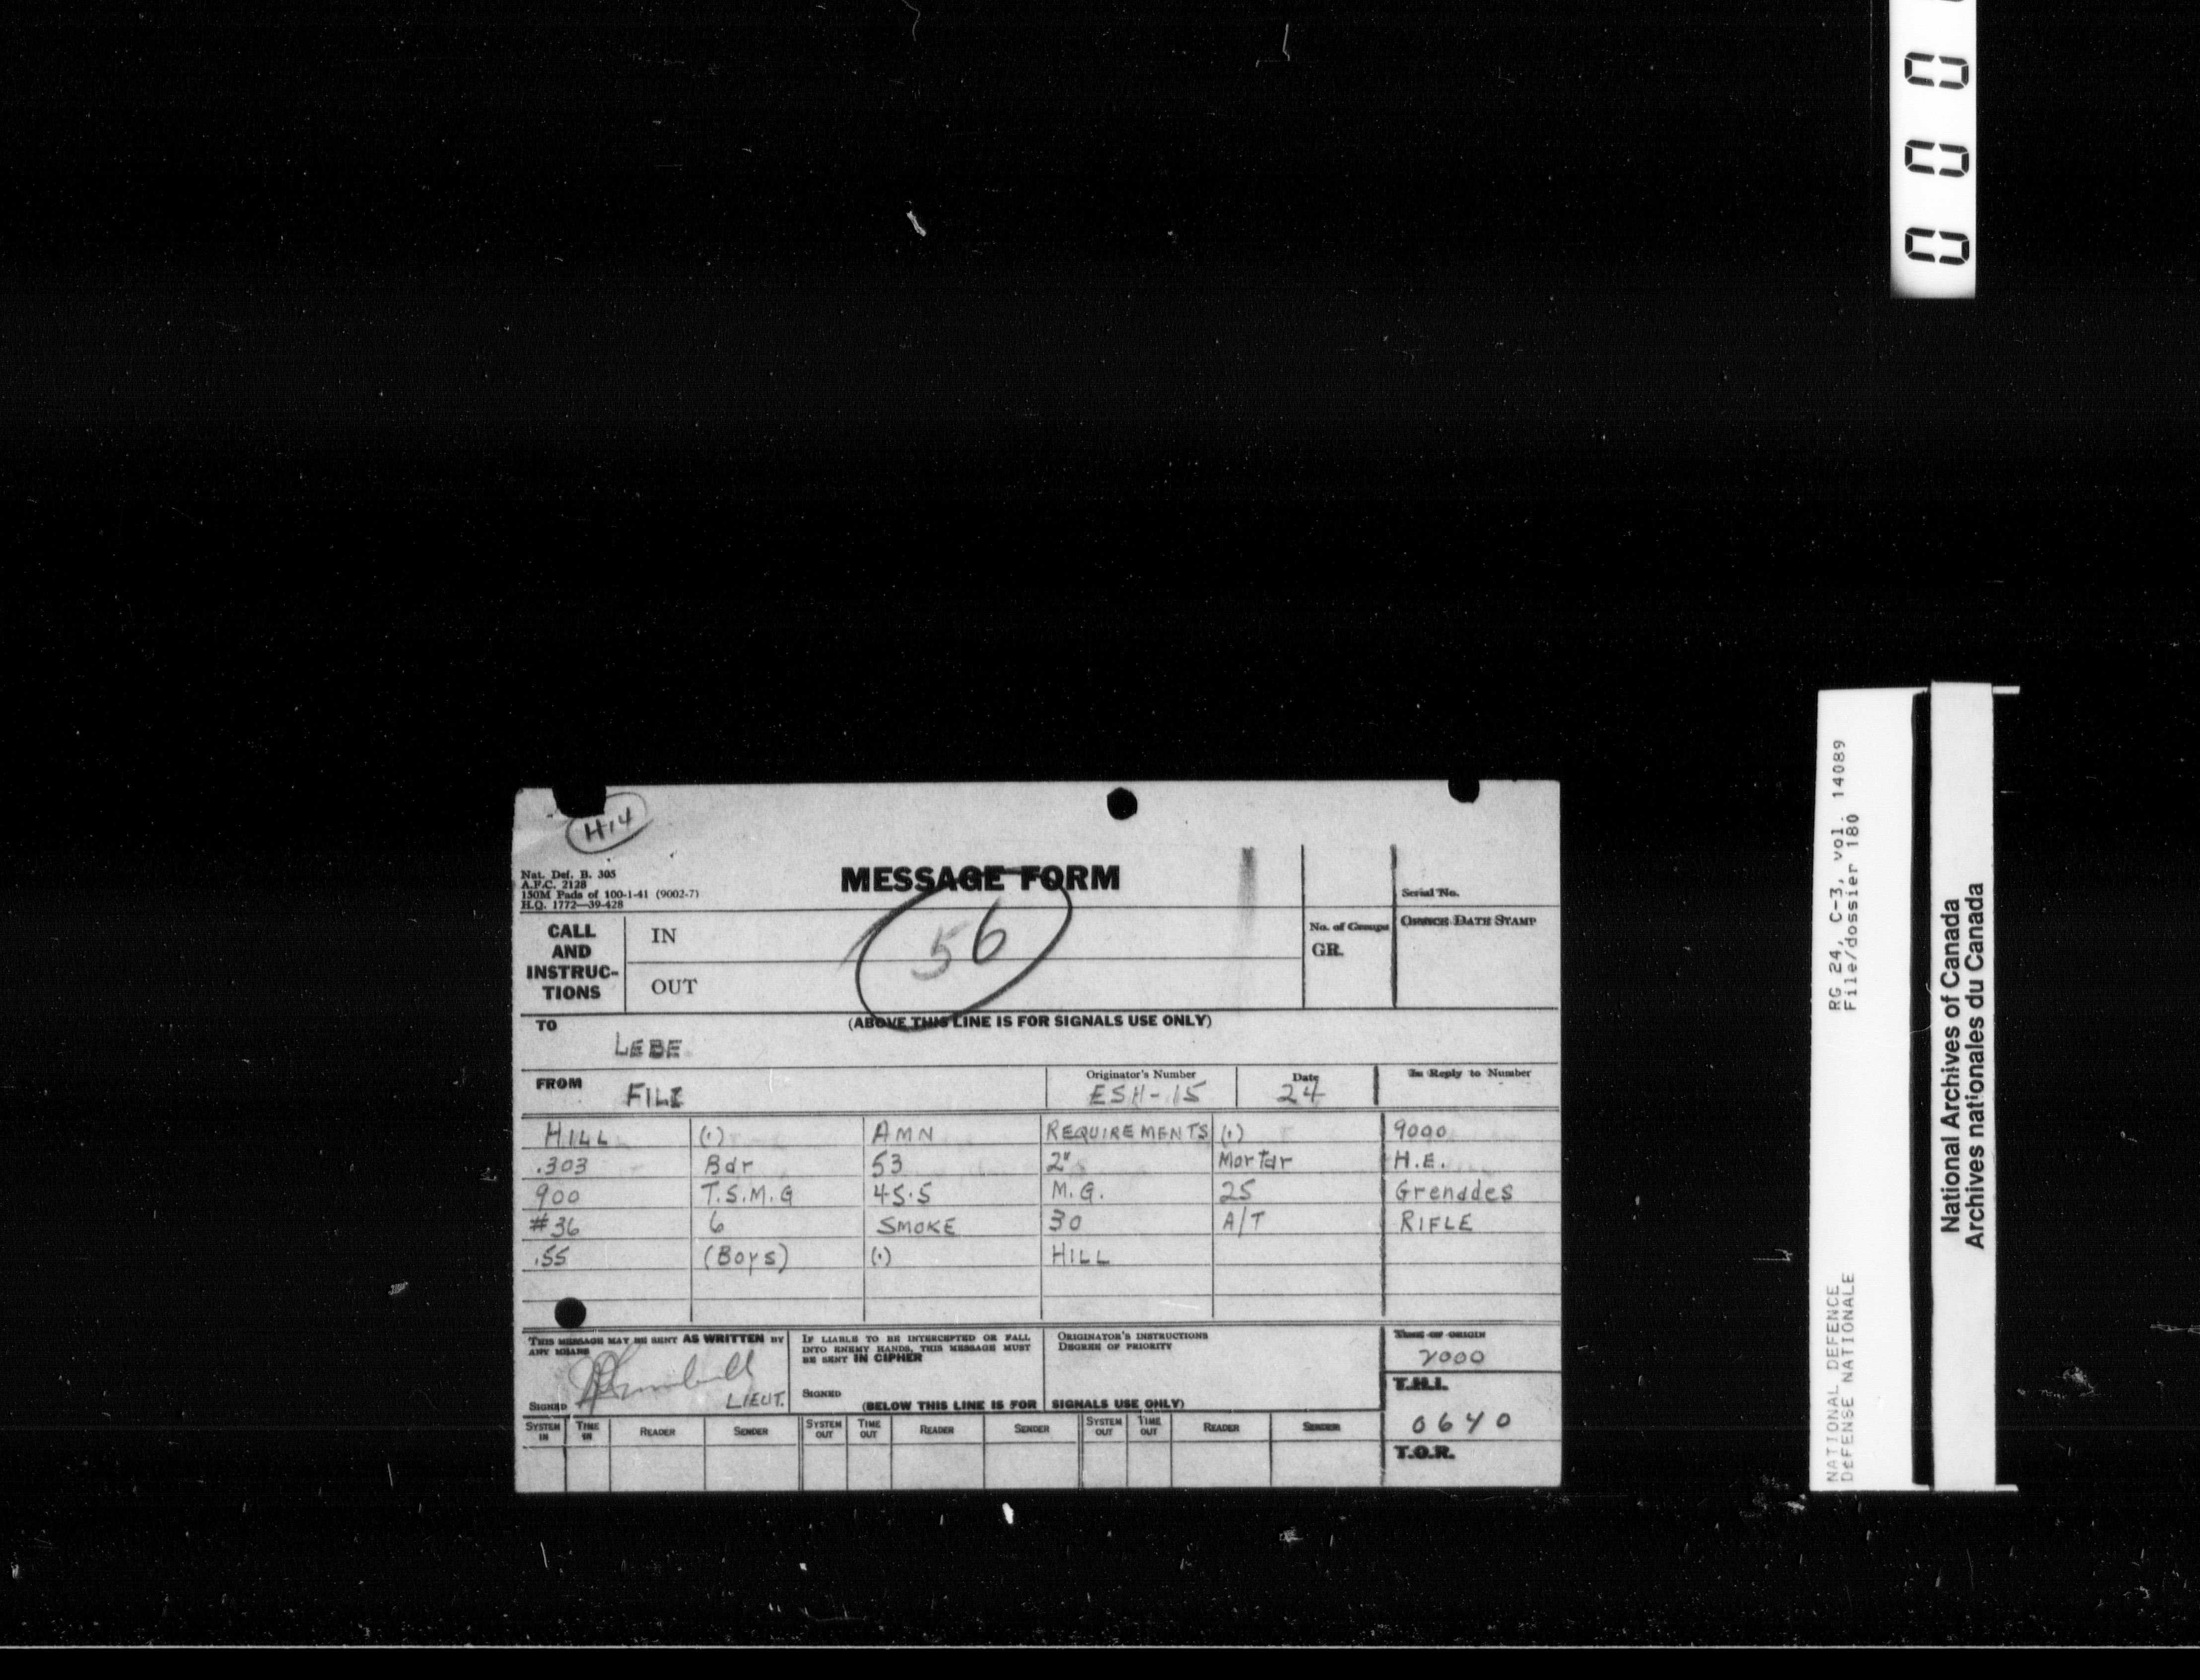 0 0 0
H14
Nat. Def. B. 305
A.F.C. 2128
150M Pads of 100-1-41 (9002-7)
H.Q. 1772—39-428
MESSAGE FORM
Serial No.
CALL AND INSTRUC-TIONS
IN
OUT
56
No. of Groups
GR.
OFFICE DATE STAMP
(ABOVE THIS LINE IS FOR SIGNALS USE ONLY)
TO LEBE
FROM FILI
Originator's Number ESH-15
Date 24
In Reply to Number
HILL (.) AMN REQUIREMENTS (.) 9000
.303 Bdr 53 2" Mortar H.E.
900 T.S.M.G 45.5 M.G. 25 Grenades
#36 6 SMOKE 30 A/T RIFLE
.55 (Boys) (.) HILL
THIS MESSAGE MAY BE SENT AS WRITTEN BY
ANY MEANS
SIGNED LIEUT.
IF LIABLE TO BE INTERCEPTED OR FALL
INTO ENEMY HANDS, THIS MESSAGE MUST
BE SENT IN CIPHER
SIGNED
ORIGINATOR'S INSTRUCTIONS
DEGREE OF PRIORITY
TIME OF ORIGIN
2000
T.H.I.
0640
T.O.R.
(BELOW THIS LINE IS FOR SIGNALS USE ONLY)
SYSTEM IN TIME IN READER SENDER SYSTEM OUT TIME OUT READER SENDER SYSTEM OUT TIME OUT READER SENDER
RG 24, C-3, vol. 14089
File/dossier 180
NATIONAL DEFENCE
DEFENSE NATIONALE
National Archives of Canada
Archives nationales du Canada